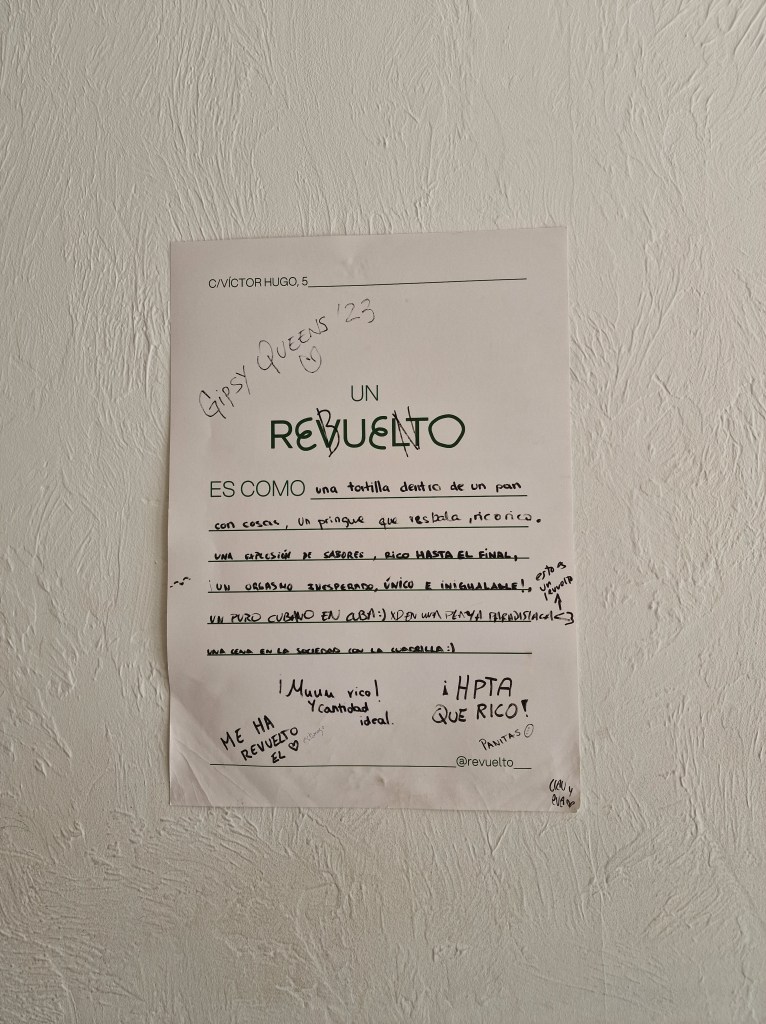 C/VÍCTOR HUGO, 5
GIPSY QUEENS '23
UN
REVUELTO
B N
ES COMO una tortilla dentro de un pan
con cosas, un pringue que resbala, rico rico.
UNA EXPLOSIÓN DE SABORES, RICO HASTA EL FINAL,
¡UN ORGASMO INESPERADO, ÚNICO E INIGUALABLE!,
esto es
un
UN PURO CUBANO EN CUBA:) XD EN UNA PLAYA PARADISIACA <3
UNA CENA EN LA SOCIEDAD CON LA CUADRILLA:)
¡Muuu rico!
Y cantidad
ideal.
¡HPTA
QUE RICO!
PANITAS
ME HA
REVUELTO
EL
@revuelto